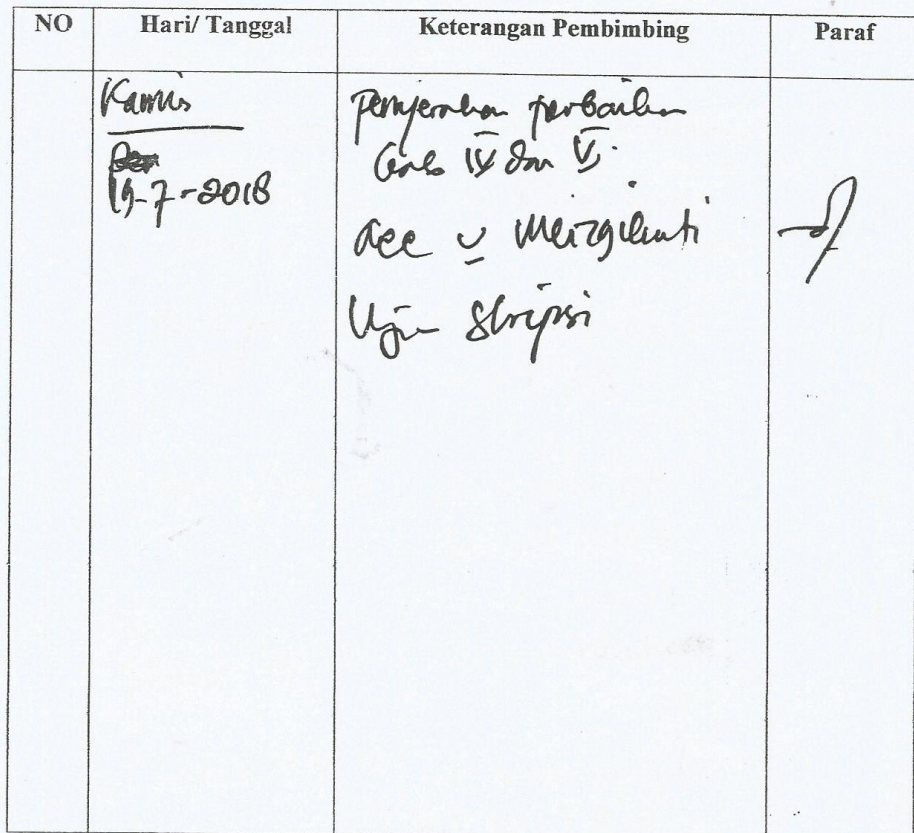 NO Hari/ Tanggal Keterangan Pembimbing Paraf
Kamis
Penyerahan perbaikan
Bab IV dan V.
19-7-2018
acc u mengikuti
Ujian Skripsi